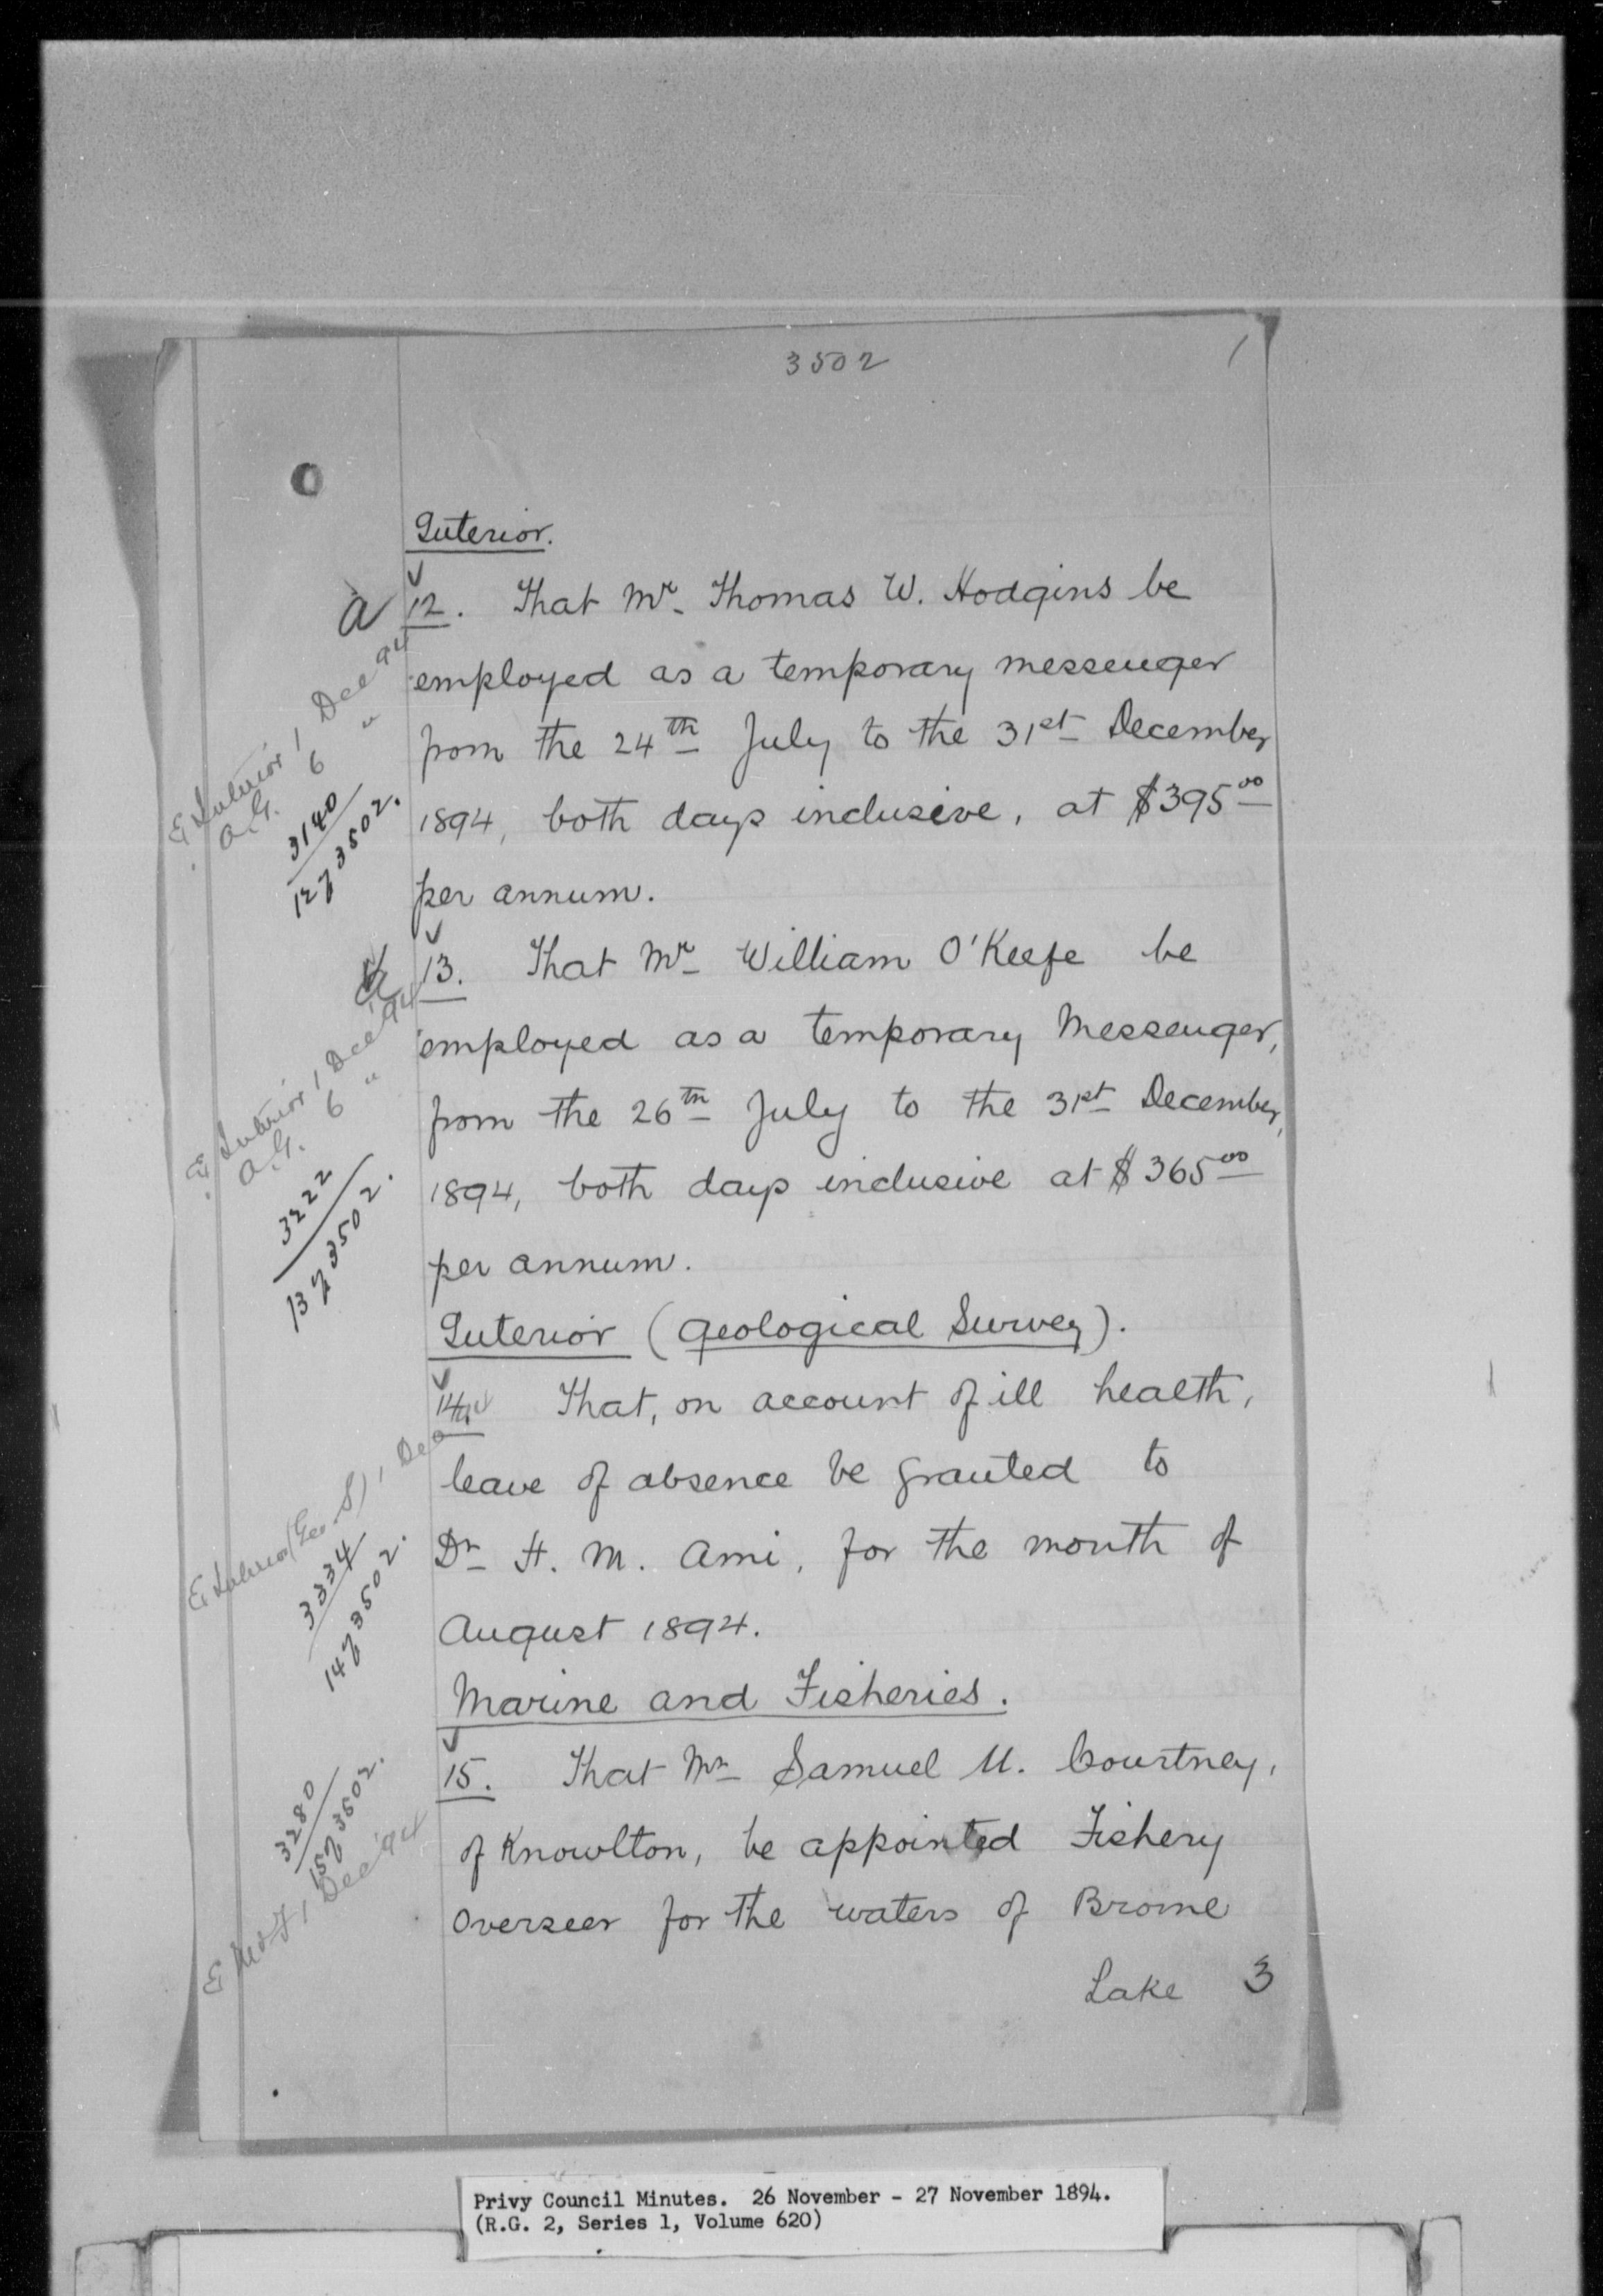 3502
Interior.
a 12. That Mr. Thomas W. Hodgins be
employed as a temporary messenger
from the 24th July to the 31st December
1894, both days inclusive, at $395.00
per annum.
E Interior 1 Dec 94
A.G. 6 "
3140
12 of 3502.
a 13. That Mr William O'Keefe be
employed as a temporary Messenger,
from the 26th July to the 31st December,
1894, both days inclusive at $365.00
per annum.
E Interior 1 Dec 94
A.G. 6 "
3222
13 of 3502.
Interior (Geological Survey).
14. That, on account of ill health,
leave of absence be granted to
Dr H. M. Ami, for the month of
August 1894.
E Interior (Geo. S), 1 Dec
3334
14 of 3502.
Marine and Fisheries.
15. That Mr Samuel U. Courtney,
of Knowlton, be appointed Fishery
Overseer for the waters of Brome
Lake 3
3280
15 of 3502.
E M & F 1 Dec '94
Privy Council Minutes. 26 November - 27 November 1894.
(R.G. 2, Series 1, Volume 620)